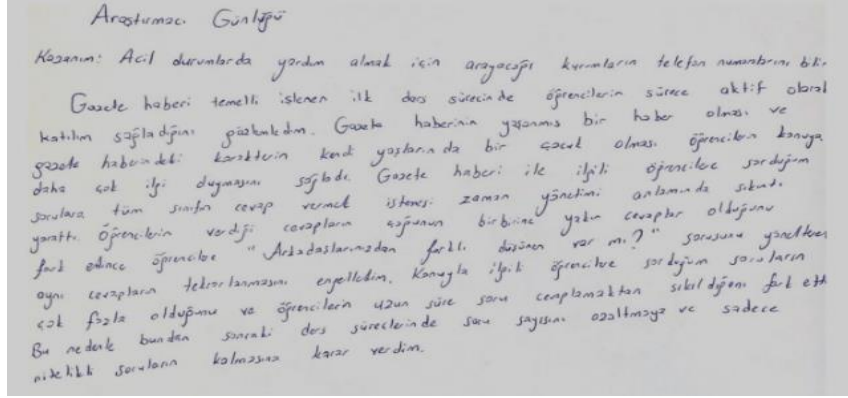 Araştırmacı Günlüğü
Kazanım: Acil durumlarda yardım almak için arayacağı kurumların telefon numaralarını bilir.
Gazete haberi temelli işlenen ilk ders sürecinde öğrencilerin sürece aktif olarak
katılım sağladığını gözlemledim. Gazete haberinin yaşanmış bir haber olması ve
gazete haberindeki karakterin kendi yaşlarında bir çocuk olması öğrencilerin konuya
daha çok ilgi duymasını sağladı. Gazete haberi ile ilgili öğrencilere sorduğum
sorulara tüm sınıfın cevap vermek istemesi zaman yönetimi anlamında sıkıntı
yarattı. Öğrencilerin verdiği cevapların çoğunun birbirine yakın cevaplar olduğunu
fark edince öğrencilere "Arkadaşlarınızdan farklı düşünen var mı?" sorusunu yönelterek
aynı cevapların tekrarlanmasını engelledim. Konuyla ilgili öğrencilere sorduğum soruların
çok fazla olduğunu ve öğrencilerin uzun süre soru cevaplamaktan sıkıldığını fark ettim.
Bu nedenle bundan sonraki ders süreçlerinde soru sayısını azaltmaya ve sadece
nitelikli soruların kalmasına karar verdim.